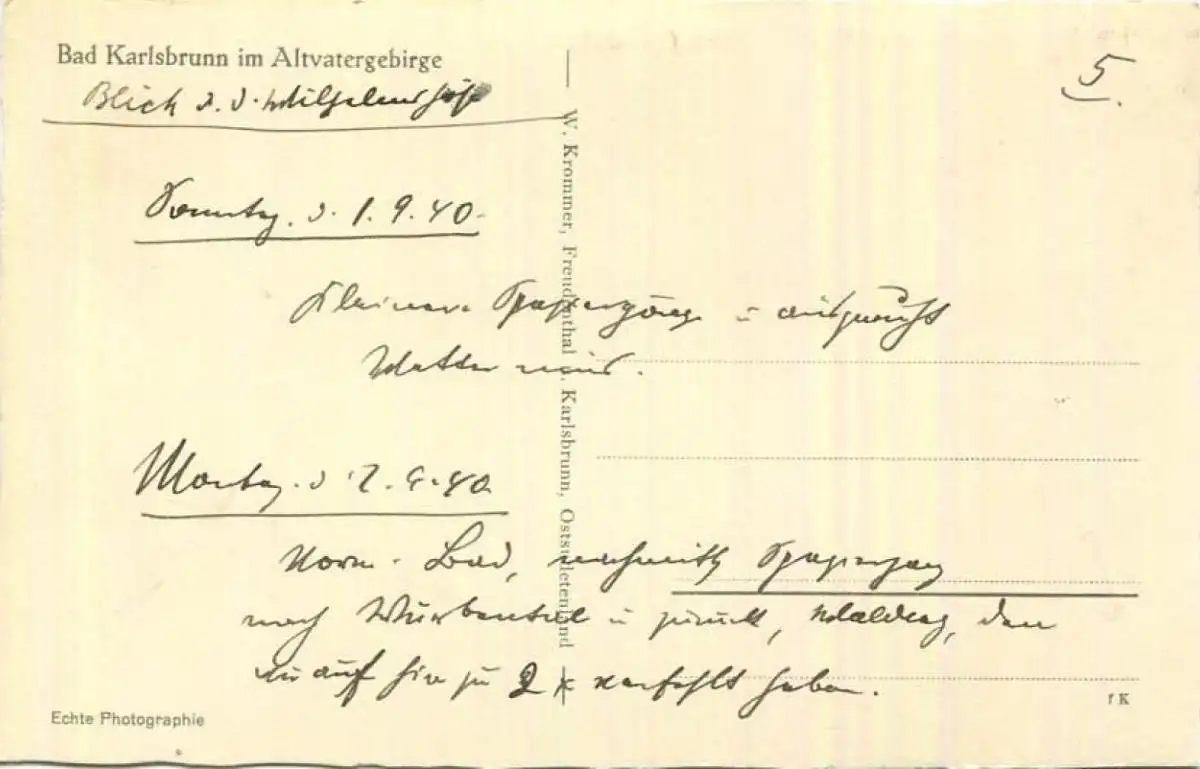 Bad Karlsbrunn im Altvatergebirge
Blick v. d. Wilhelmshöhe
5.
Sonntag. d. 1.9.40.
Kleinere Spaziergänge u ausgeruht
Wetter
Montag. d 2.9.40
Vorm. Bad, nachmitt Spaziergang
nach Würbental u zurück, Waldweg, den
wir auf hin zu 2 x verfehlt haben.
W. Krommer, Freudenthal u. Karlsbrunn, Ostsudetenland
Echte Photographie
f K